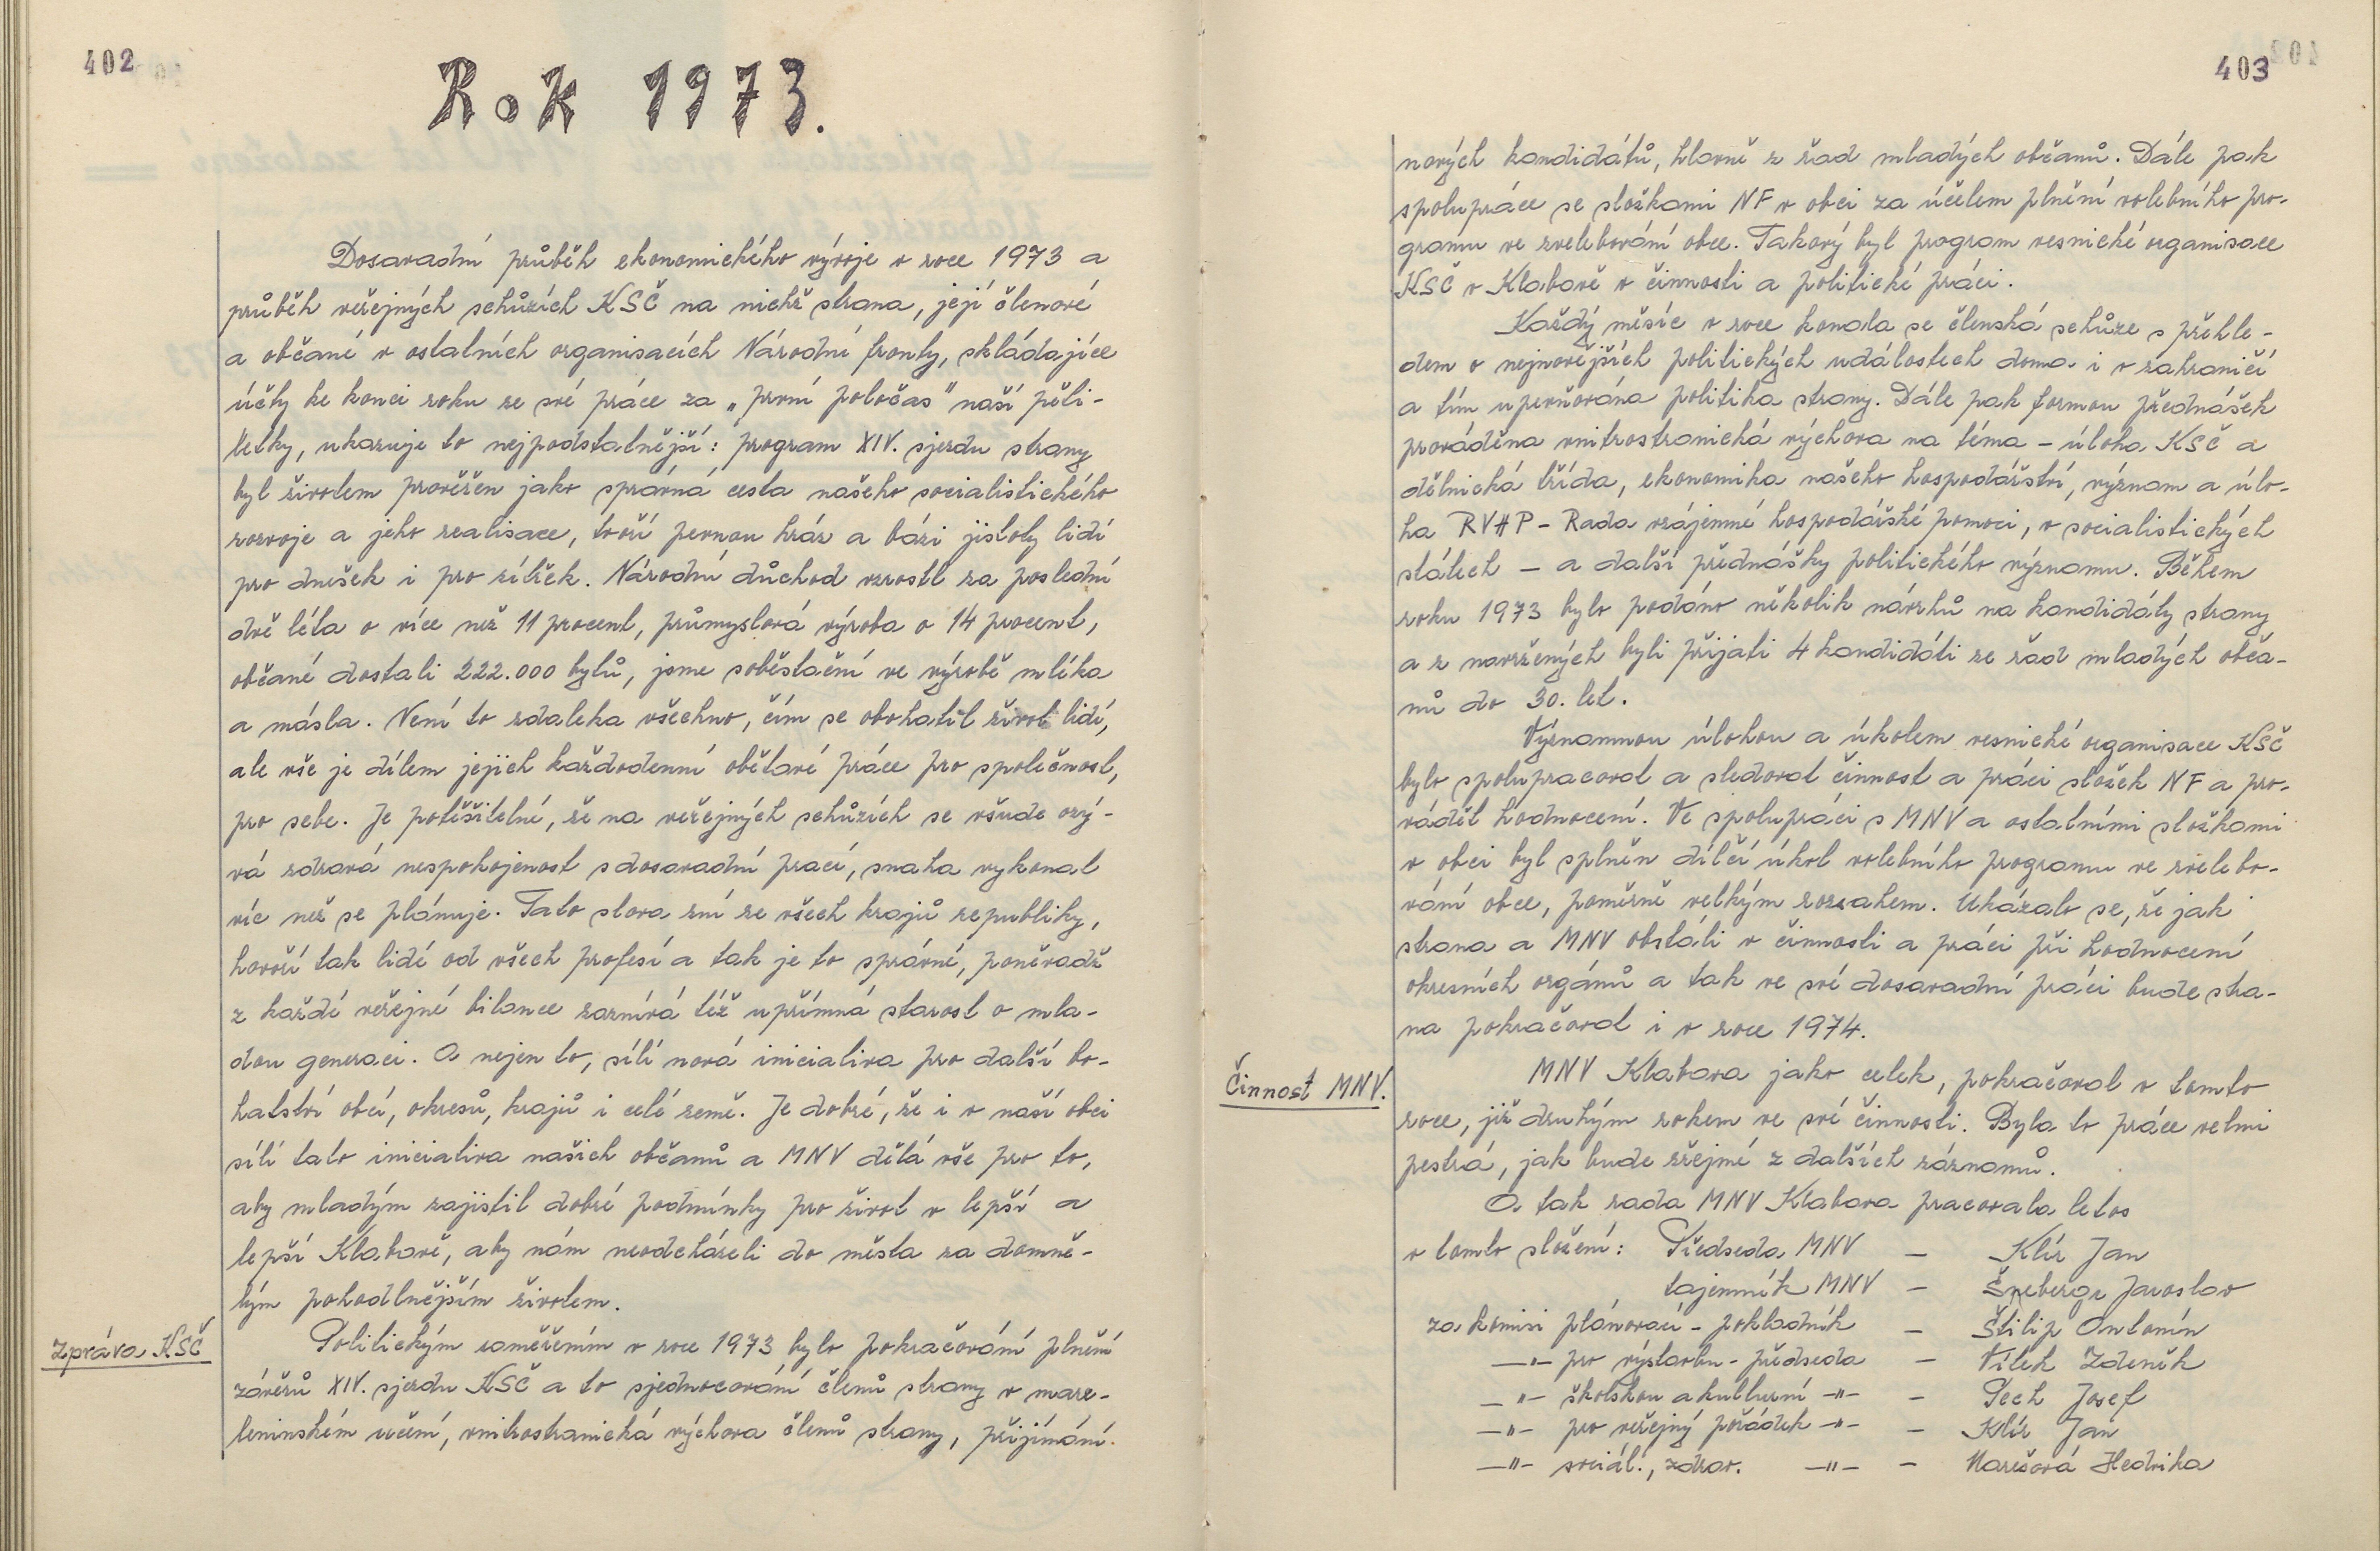 402
Rok 1973.
Dosavadní průběh ekonomického vývoje v roce 1973 a
průběh veřejných schůzích KSČ na nichž strana, její členové
a občané v ostatních organisacích Národní fronty, skládajíce
účty ke konci roku ze své práce za „první poločas" naší pěti-
letky, ukazuje to nejpodstatnější: program XIV. sjezdu strany
byl životem prověřen jako správná cesta našeho socialistického
rozvoje a jeho realisace, tvoří pevnou hráz a bázi jistoty lidí
pro dnešek i pro zítřek. Národní důchod vzrostl za poslední
dvě léta o více než 11 procent, průmyslová výroba o 14 procent,
občané dostali 222.000 bytů, jsme soběstační ve výrobě mléka
a másla. Není to zdaleka všechno, čím se obohatil život lidí,
ale vše je dílem jejich každodenní obětavé práce pro společnost,
pro sebe. Je potěšitelné, že na veřejných schůzích se všude ozý-
vá zdravá nespokojenost s dosavadní prací, snaha vykonat
víc než se plánuje. Tato slova zní ze všech krajů republiky,
hovoří tak lidé od všech profesí a tak je to správné, poněvadž
z každé veřejné bilance zaznívá též upřímná starost o mla-
dou generaci. A nejen to, sílí nová iniciativa pro další bo-
hatství obcí, okresů, krajů i celé země. Je dobré, že i v naší obci
sílí tato iniciativa našich občanů a MNV dělá vše pro to,
aby mladým zajistil dobré podmínky pro život v lepší a
lepší Klabavě, aby nám neodcházeli do města za domně-
lým pohodlnějším životem.
Zpráva KSČ
Politickým zaměřením v roce 1973 bylo pokračování plnění
závěrů XIV. sjezdu KSČ a to sjednocování členů strany v marx-
leninském učení, vnitrostranická výchova členů strany, přijímání
403
nových kandidátů, hlavně z řad mladých občanů. Dále pak
spolupráce se složkami NF v obci za účelem plnění volebního pro-
gramu ve zvelebování obce. Takový byl program vesnické organisace
KSČ v Klabavě v činnosti a politické práci.
Každý měsíc v roce konala se členská schůze s přehle-
dem o nejnovějších politických událostech doma i v zahraničí
a tím upevňována politika strany. Dále pak formou přednášek
prováděna vnitrostranická výchova na téma - úloha KSČ a
dělnická třída, ekonomika našeho hospodářství, význam a úlo-
ha RVHP - Rada vzájemné hospodářské pomoci, v socialistických
státech - a další přednášky politického významu. Během
roku 1973 bylo podáno několik návrhů na kandidáty strany
a z navržených byli přijati 4 kandidáti ze řad mladých obča-
nů do 30. let.
Významnou úlohou a úkolem vesnické organisace KSČ
bylo spolupracovat a sledovat činnost a práci složek NF a pro-
vádět hodnocení. Ve spolupráci s MNV a ostatními složkami
v obci byl splněn dílčí úkol volebního programu ve zvelebo-
vání obce, poměrně velkým rozsahem. Ukázalo se, že jak
strana a MNV obstáli v činnosti a práci při hodnocení
okresních orgánů a tak ve své dosavadní práci bude stra-
na pokračovat i v roce 1974.
Činnost MNV.
MNV Klabava jako celek, pokračoval v tomto
roce, již druhým rokem ve své činnosti. Byla to práce velmi
pestrá, jak bude zřejmé z dalších záznamů.
A tak rada MNV Klabava pracovala letos
v tomto složení: Předseda MNV - Klír Jan
tajemník MNV - Šneberger Jaroslav
za komisi plánovací - pokladník - Štilip Antonín
—"— pro výstavbu - předseda - Vílek Zdeněk
—"— školskou a kulturní —"— - Pech Josef
—"— pro veřejný pořádek —"— - Klír Jan
—"— sociál., zdrav. —"— - Marešová Hedvika